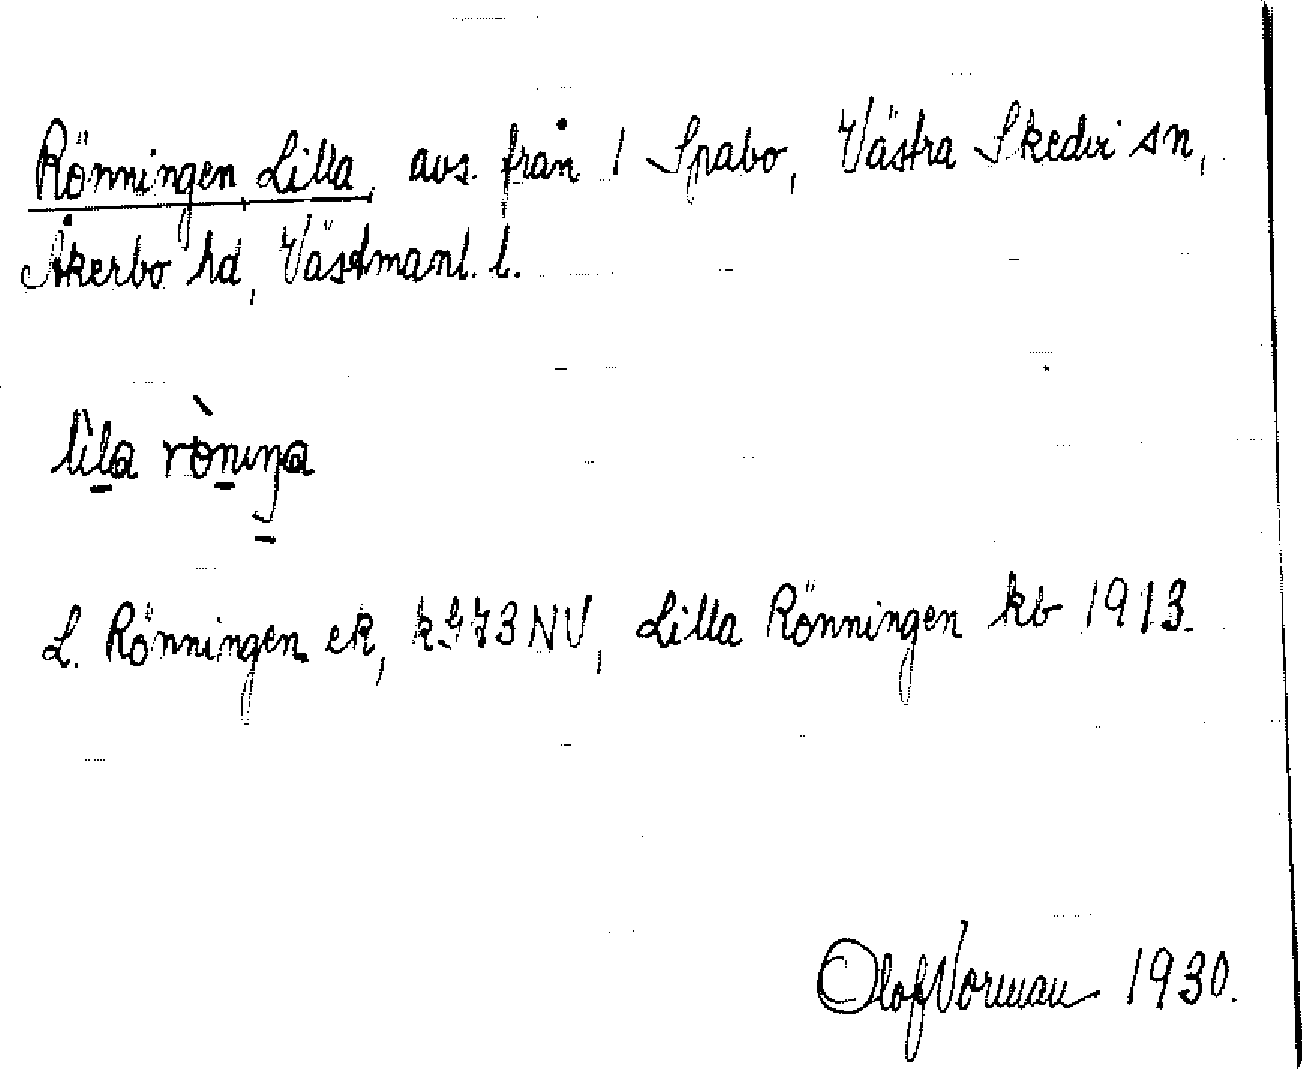 Rönningen, Lilla, avs. från 1 Spabo, Västra Skedvi sn,
Åkerbo hd, Västmanl. l.
lila röniŋa
L. Rönningen ek, k 73 NV, Lilla Rönningen kb 1913.
Olof Norman 1930.